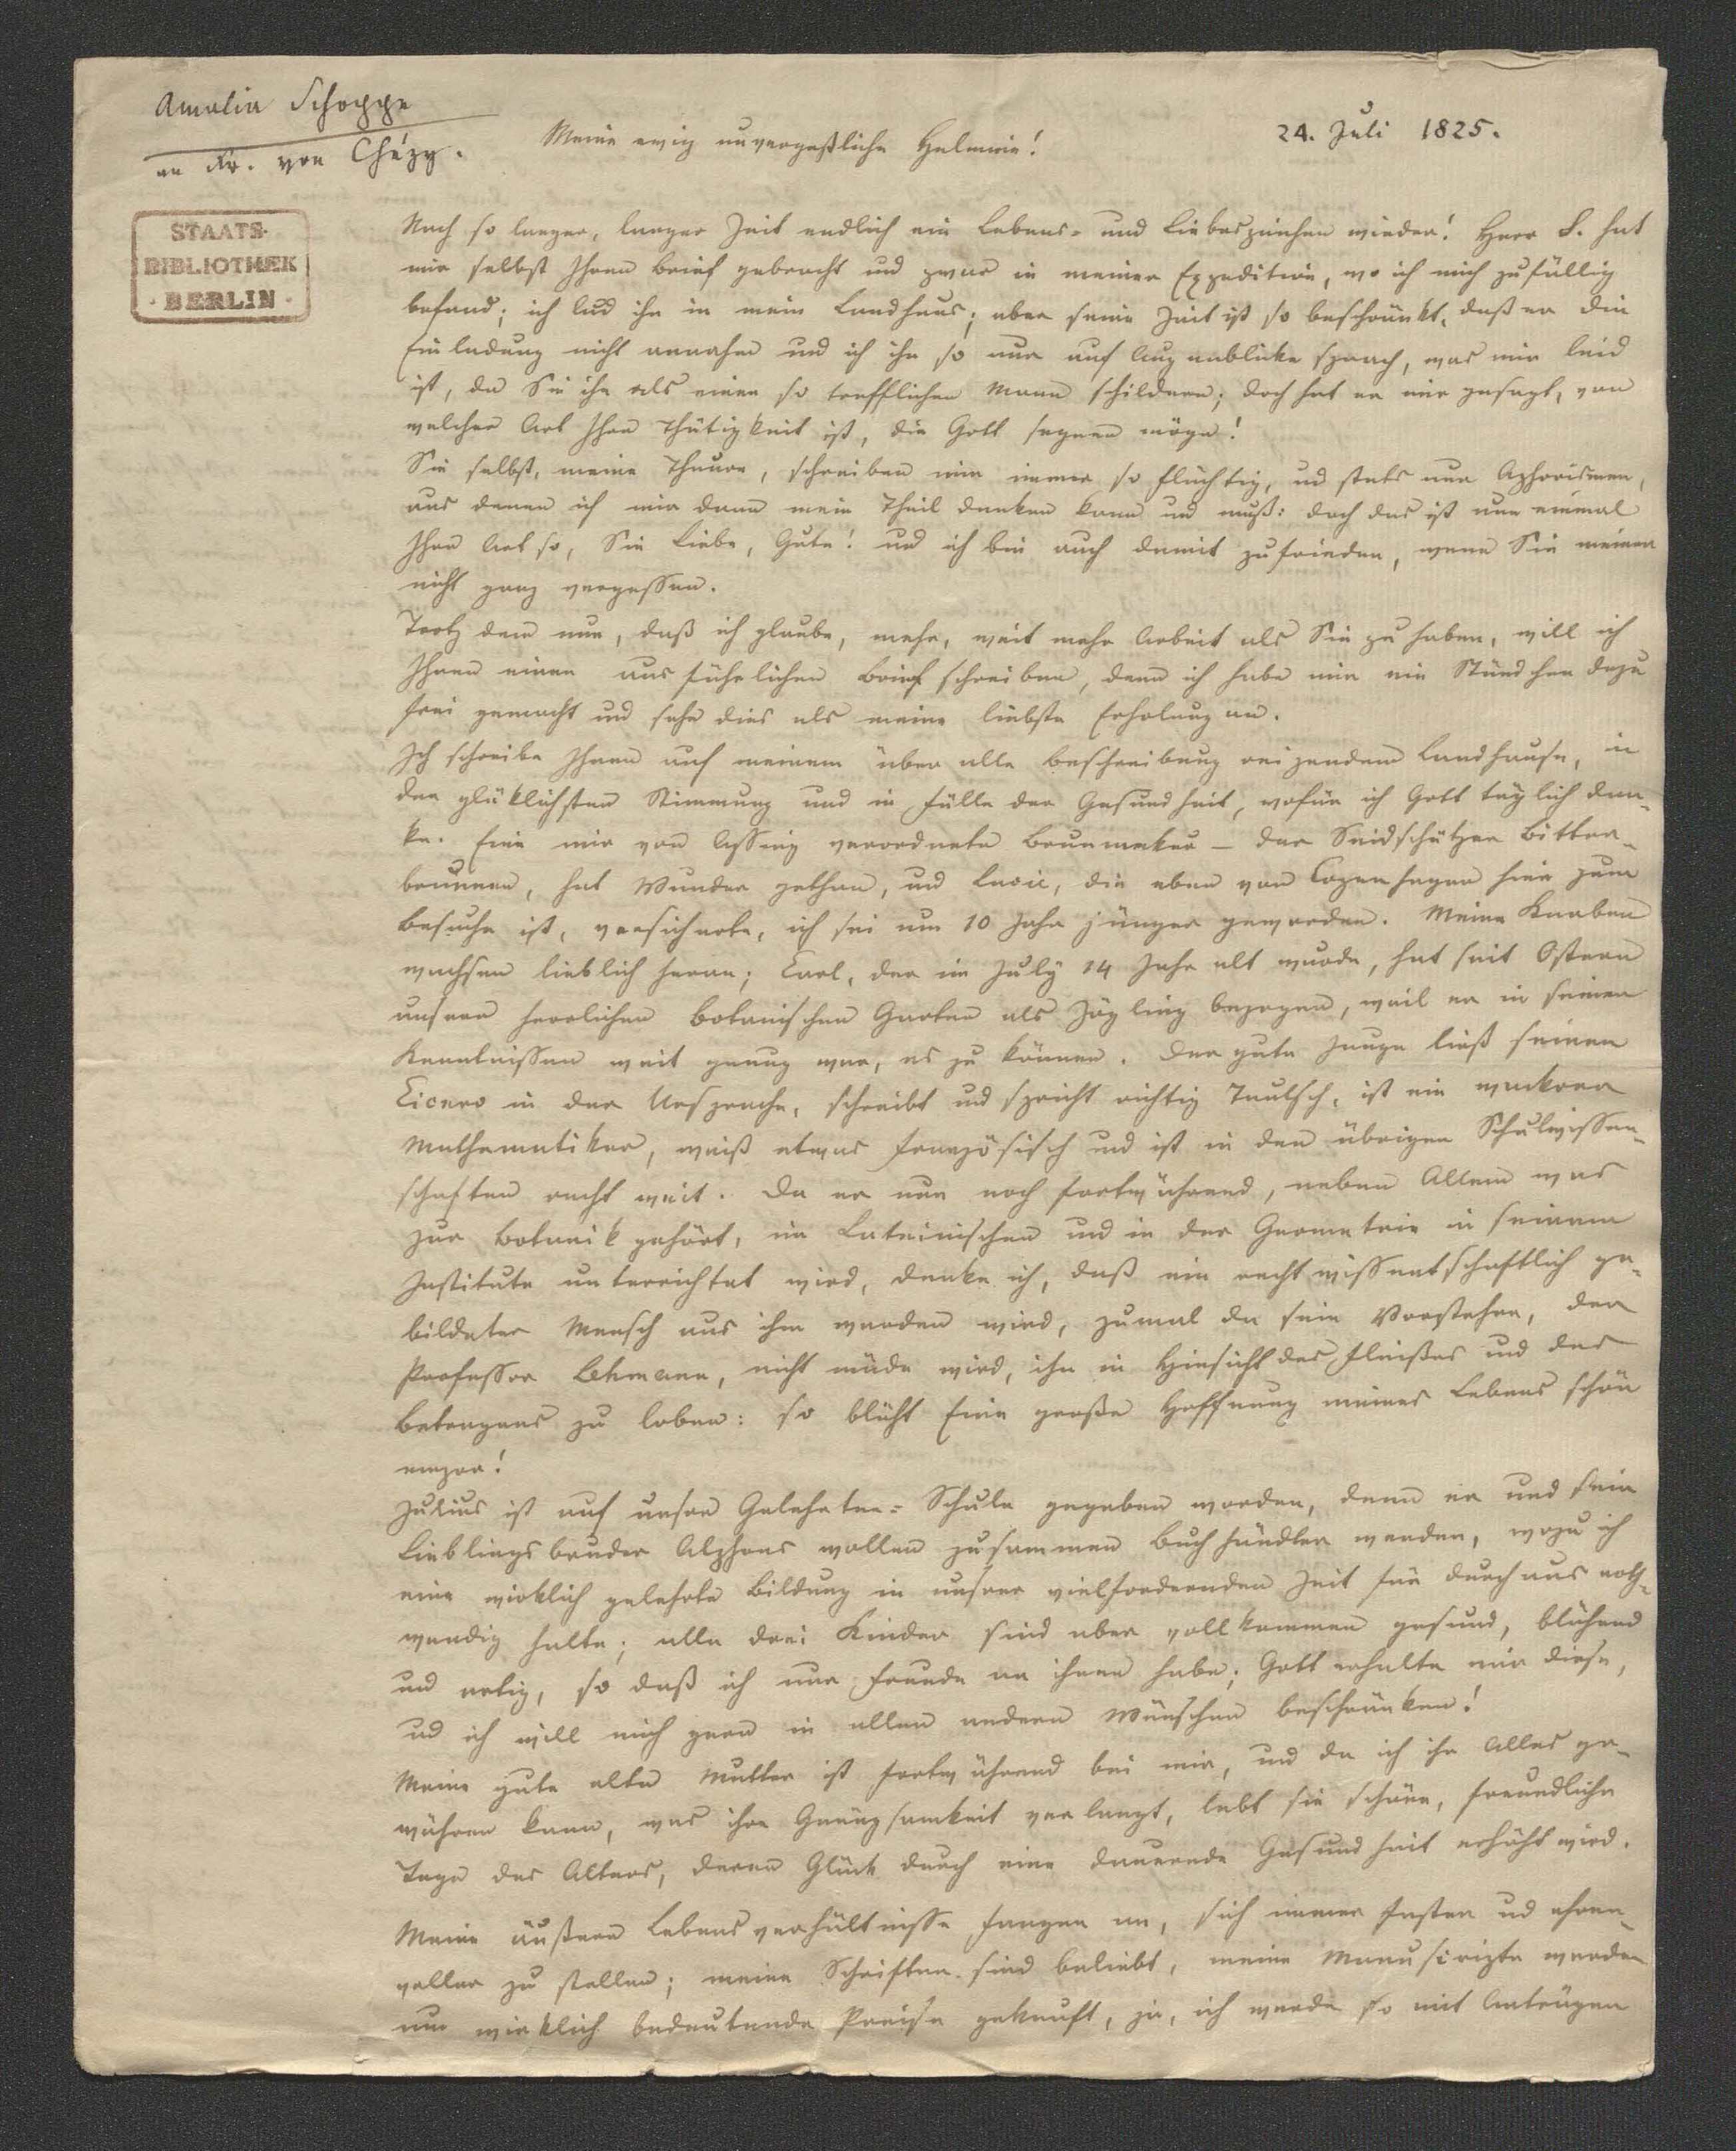 Amalia Schoppe
an Fr. von Chézy.
24. Juli 1825.
Meine ewig unvergeßliche Helmine!
STAATS-
BIBLIOTHEK
· BERLIN ·
Nach so langer, langer Zeit endlich ein Lebens- und Liebeszeichen wieder! Herr S. hat
mir selbst Ihren Brief gebracht und zwar in meiner Expedition, wo ich mich zufällig
befand; ich lud ihn in mein Landhaus; aber seine Zeit ist so beschränkt, daß er die
Einladung nicht annahm und ich ihn so nur auf Augenblicke sprach, was mir leid
ist, da Sie ihn als einen so trefflichen Mann schildern; doch hat er mir gesagt, von
welcher Art Ihre Thätigkeit ist, die Gott segnen möge!
Sie selbst, meine Theure, schreiben mir immer so flüchtig, und stets nur Aphorismen,
aus denen ich mir dann mein Theil denken kann und muß: doch das ist nun einmal
Ihre Art so, Sie Liebe, Gute! und ich bin auch damit zufrieden, wenn Sie meiner
nicht ganz vergessen.
Trotz dem nun, daß ich glaube, mehr, weit mehr Arbeit als Sie zu haben, will ich
Ihnen einen ausführlichen Brief schreiben, denn ich habe mir ein Stündchen dazu
frei gemacht und sehe dies als meine liebste Erholung an.
Ich schreibe Ihnen auf meinem über alle Beschreibung reizendem Landhause, in
der glüklichsten Stimmung und in Fülle der Gesundheit, wofür ich Gott täglich dan-
ke. Eine mir von Assing verordnete Brunnenkur – der Saidschützer Bitter-
brunnen, hat Wunder gethan, und Lucie, die eben von Copenhagen hier zum
Besuche ist, versicherte, ich sei um 10 Jahr jünger geworden. Meine Knaben
wachsen lieblich heran; Carl, der im July 14 Jahr alt wurde, hat seit Ostern
unsern herrlichen botanischen Garten als Zögling bezogen, weil er in seinen
Kenntnissen weit genug war, es zu können. Der gute Junge ließt seinen
Cicero in der Ursprache, schreibt und spricht richtig Teutsch, ist ein wackerer
Mathematiker, weiß etwas französisch und ist in den übrigen Schulwissen-
schaften recht weit. Da er nun noch fortwährend, neben Allem was
zur Botanik gehört, im Lateinischen und in der Geometrie in seinem
Institute unterrichtet wird, denke ich, daß ein recht wissentschaftlich ge-
bildeter Mensch aus ihm werden wird, zumal da sein Vorsteher, der
Professor Lehmann, nicht müde wird, ihn in Hinsicht des Fleißes und des
Betragens zu loben: so blüht Eine große Hoffnung meines Lebens schön
empor!
Julius ist auf unsre Gelehrten-Schule gegeben worden, denn er und sein
Lieblingsbruder Alphons wollen zusammen Buchhändler werden, wozu ich
eine wirklich gelehrte Bildung in unsrer vielfordernden Zeit für durchaus noth-
wendig halte; alle drei Kinder sind aber vollkommen gesund, blühend
und artig, so daß ich nur Freude an ihnen habe; Gott erhalte mir diese,
und ich will mich gern in allen andern Wünschen beschränken!
Meine gute alte Mutter ist fortwährend bei mir, und da ich ihr Alles ge-
währen kann, was ihre Genügsamkeit verlangt, lebt sie schöne, freundliche
Tage des Alters, deren Glück durch eine dauernde Gesundheit erhöht wird.
Meine äußern Lebensverhältnisse fangen an, sich immer fester und ehren-
voller zu stellen; meine Schriften sind beliebt, meine Manuscripte werden
um wirklich bedeutende Preise gekauft, ja, ich werde so mit Anträgen